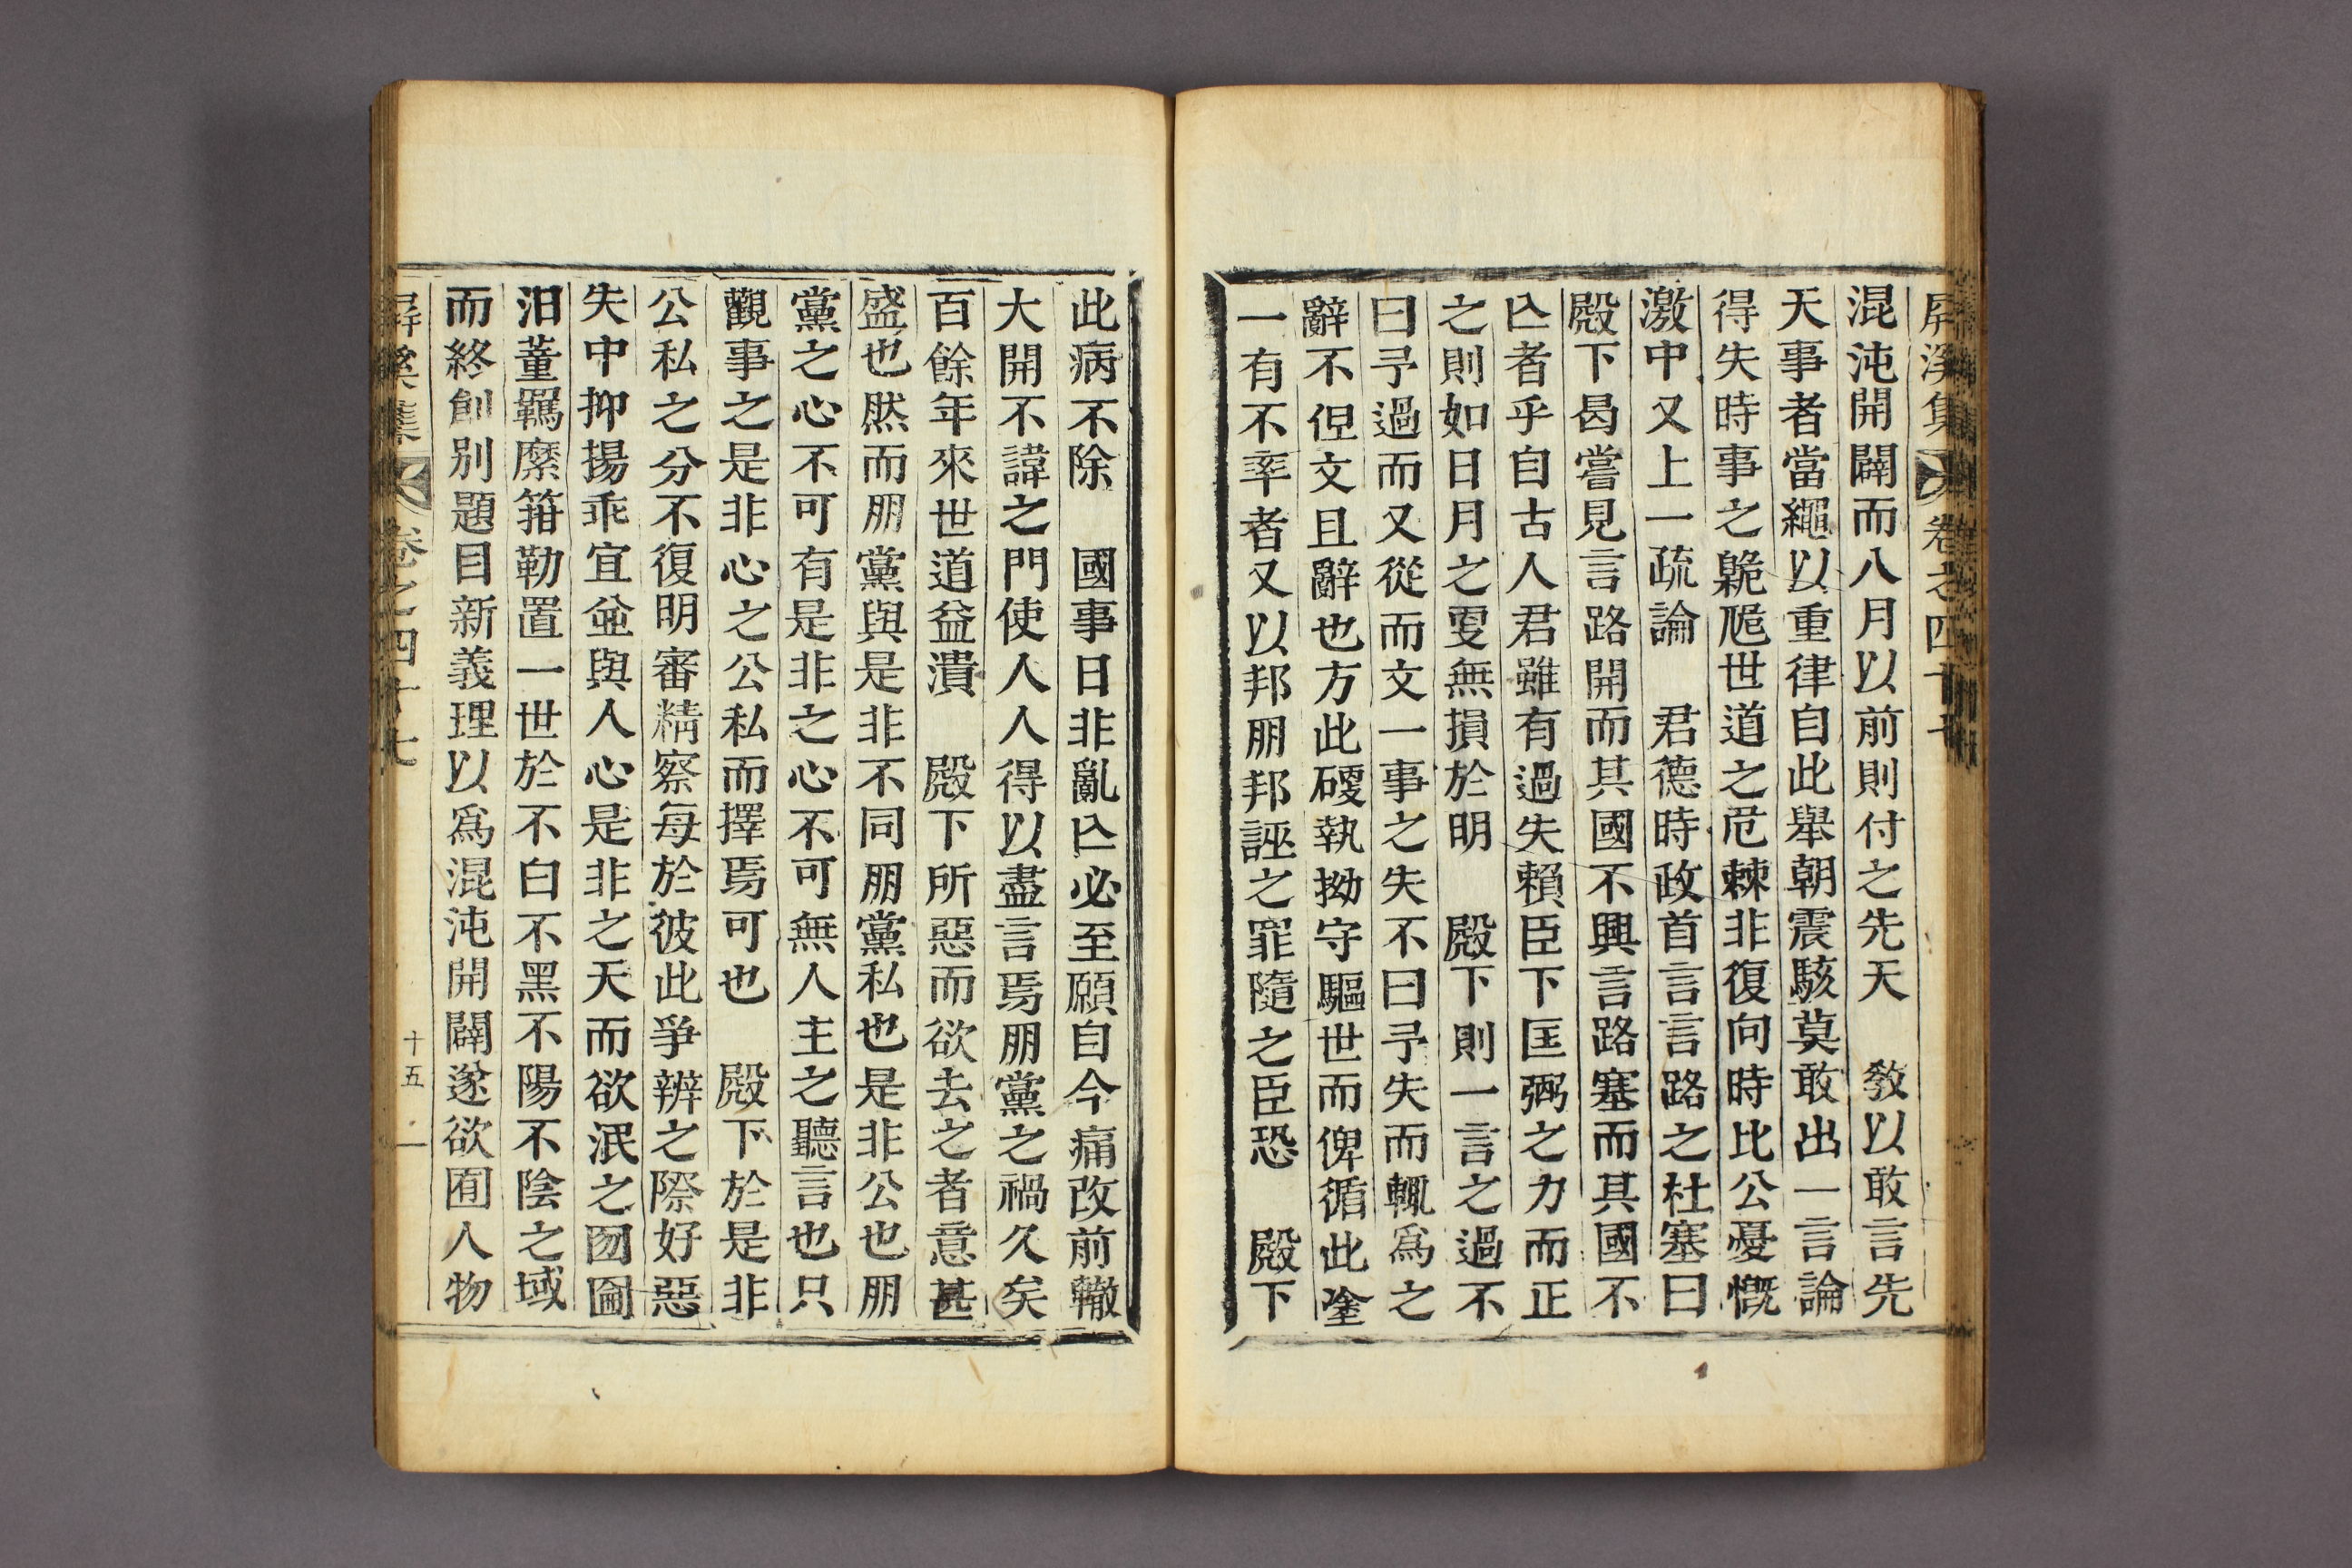 屛溪集 卷之四十七
混沌開闢而八月以前則付之先天　敎以敢言先
天事者當繩以重律自此舉朝震駭莫敢出一言論
得失時事之臲卼世道之危棘非復向時比公憂慨
激中又上一疏論　君德時政首言言路之杜塞曰
殿下曷嘗見言路開而其國不興言路塞而其國不
亾者乎自古人君雖有過失賴臣下匡弼之力而正
之則如日月之更無損於明　殿下則一言之過不
曰予過而又從而文一事之失不曰予失而輒爲之
辭不但文且辭也方此碍執拗守驅世而俾循此塗
一有不率者又以邦朋邦誣之罪隨之臣恐　殿下
此病不除　國事日非亂亾必至願自今痛改前轍
大開不諱之門使人人得以盡言焉朋黨之禍久矣
百餘年來世道益潰　殿下所惡而欲去之者意甚
盛也然而朋黨與是非不同朋黨私也是非公也朋
黨之心不可有是非之心不可無人主之聽言也只
觀事之是非心之公私而擇焉可也　殿下於是非
公私之分不復明審精察每於彼此爭辨之際好惡
失中抑揚乖宜並與人心是非之天而欲泯之囫圇
汨董羈縻箝勒置一世於不白不黑不陽不陰之域
而終創別題目新義理以爲混沌開闢遂欲囿人物
屛溪集 卷之四十七 十五